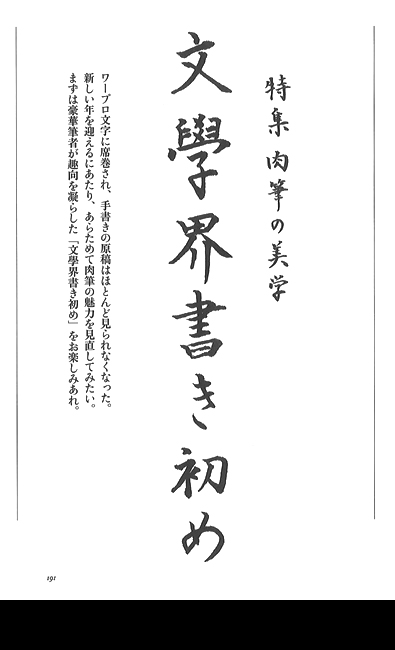 特集 肉筆の美学
文學界書き初め
ワープロ文字に席巻され、手書きの原稿はほとんど見られなくなった。
新しい年を迎えるにあたり、あらためて肉筆の魅力を見直してみたい。
まずは豪華筆者が趣向を凝らした「文學界書き初め」をお楽しみあれ。
191